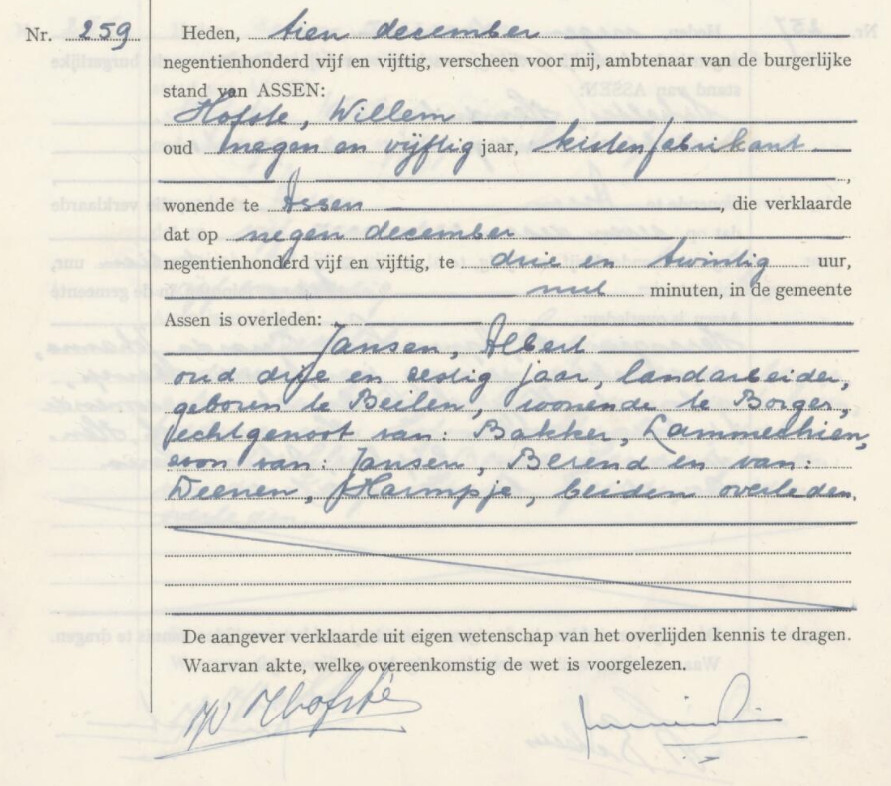 Nr. 259 Heden, tien december
negentienhonderd vijf en vijftig, verscheen voor mij, ambtenaar van de burgerlijke
stand van ASSEN:
Hofste, Willem
oud negen en vijftig jaar, kistenfabrikant
wonende te Assen, die verklaarde
dat op negen december
negentienhonderd vijf en vijftig, te drie en twintig uur,
nul minuten, in de gemeente
Assen is overleden:
Jansen, Albert
oud drie en zestig jaar, landarbeider,
geboren te Beilen, wonende te Borger,
echtgenoot van: Bakker, Lammechien,
zoon van: Jansen, Berend en van:
Deenen, Harmpje, beiden overleden.
De aangever verklaarde uit eigen wetenschap van het overlijden kennis te dragen.
Waarvan akte, welke overeenkomstig de wet is voorgelezen.
W Hofsté